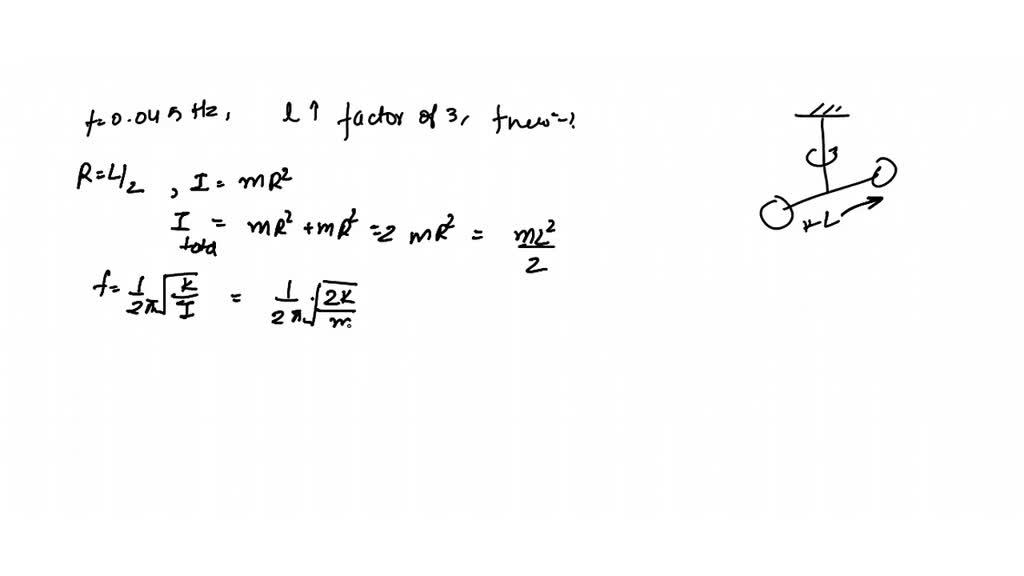 f=0.045 Hz, l↑ factor of 3, fnew=?
R=L/2, I = mR²
I total = mR² + mR² = 2 mR² = mL²/2
f= 1/2π √K/I = 1/2π √2K/m
L